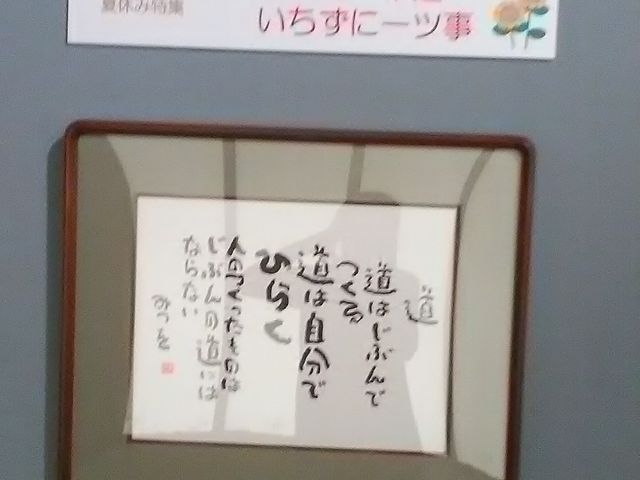 夏休み特集
いちずに一ツ事
道
道はじぶんで
つくる
道は自分で
ひらく
じぶんの道には
ならない
みつを